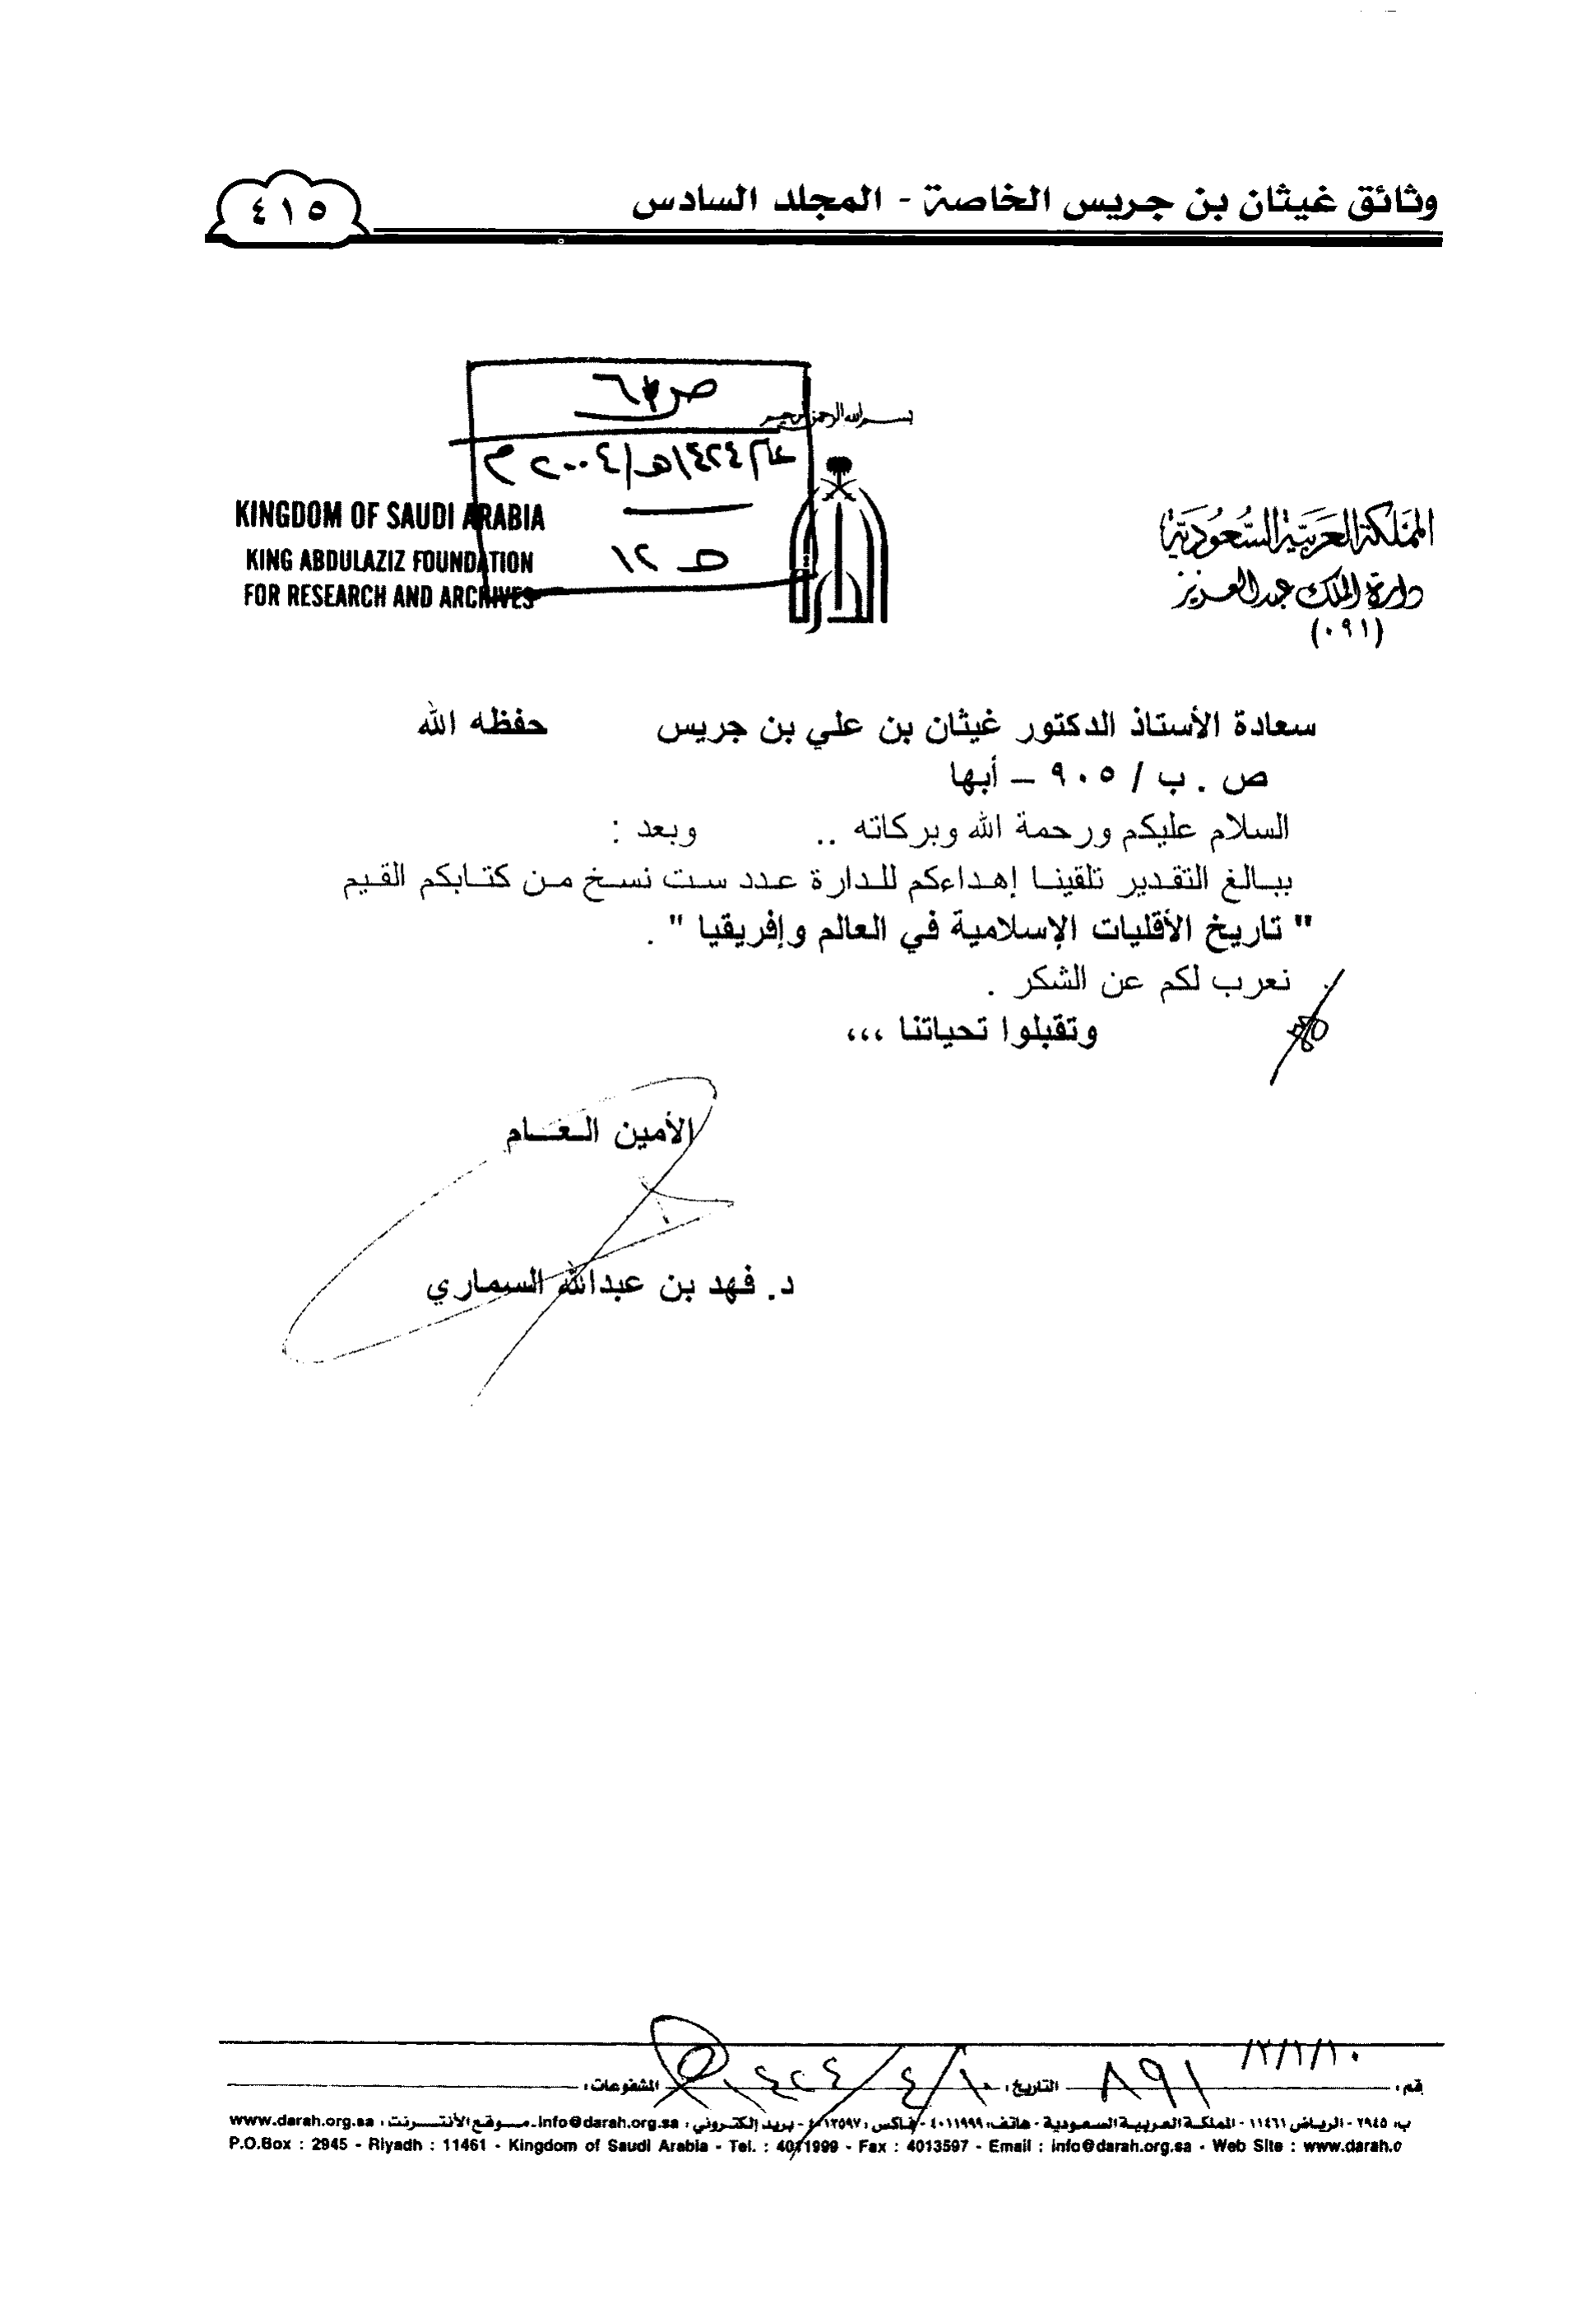 وثائق غيثان بن جريس الخاصة - المجلد السادس
٤١٥
بسم الله الرحمن الرحيم
ص
١٤٢٤هـ/٢٠٠٤م
١٢
KINGDOM OF SAUDI ARABIA
KING ABDULAZIZ FOUNDATION
FOR RESEARCH AND ARCHIVES
المملكة العربية السعودية
دارة الملك عبدالعزيز
(٠٩١)
سعادة الأستاذ الدكتور غيثان بن علي بن جريس حفظه الله
ص . ب / ٩٠٥ – أبها
السلام عليكم ورحمة الله وبركاته .. وبعد :
ببالغ التقدير تلقينا إهداءكم للدارة عدد ست نسخ من كتابكم القيم
" تاريخ الأقليات الإسلامية في العالم وإفريقيا " .
نعرب لكم عن الشكر .
وتقبلوا تحياتنا ،،،
الأمين العام
د. فهد بن عبدالله السماري
٠/١/٢/١
قم : ٨٩١ التاريخ : ١٤٢٤/٤/١٠ المشفوعات :
ب: ٢٩٤٥ - الرياض ١١٤٦١ - المملكة العربية السعودية - هاتف: ٤٠١١٩٩٩ - فاكس : ٤٠١٣٥٩٧ - بريد إلكتروني : info@darah.org.sa - موقع الأنترنت : www.darah.org.sa
P.O.Box : 2945 - Riyadh : 11461 - Kingdom of Saudi Arabia - Tel. : 4011999 - Fax : 4013597 - Email : info@darah.org.sa - Web Site : www.darah.o